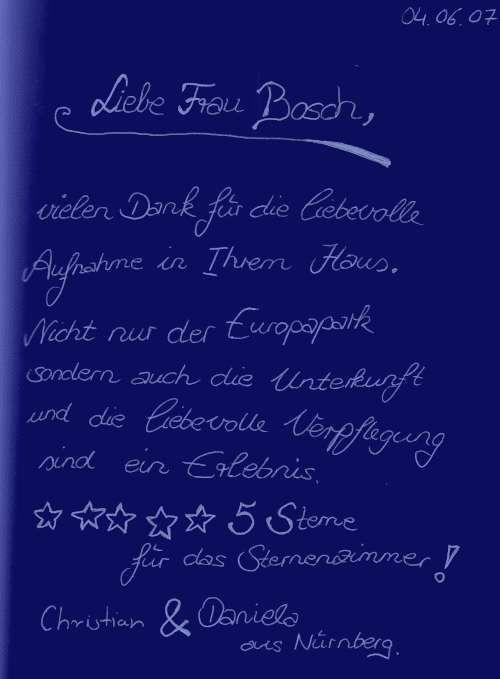 04.06.07
Liebe Frau Bosch,
vielen Dank für die liebevolle
Aufnahme in Ihrem Haus.
Nicht nur der Europapark
sondern auch die Unterkunft
und die liebevolle Verpflegung
sind ein Erlebnis.
☆☆☆☆☆ 5 Sterne
für das Sternenzimmer!
Christian & Daniela
aus Nürnberg.